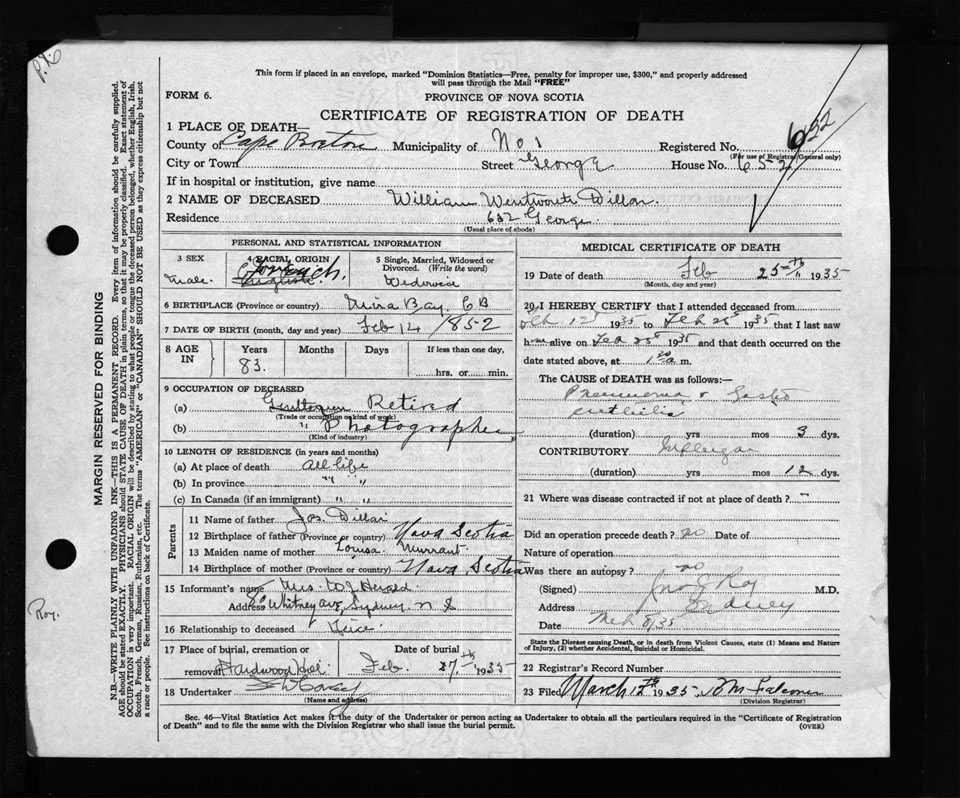 This form if placed in an envelope, marked "Dominion Statistics—Free, penalty for improper use, $300," and properly addressed
will pass through the Mail "FREE"
FORM 6.
PROVINCE OF NOVA SCOTIA
CERTIFICATE OF REGISTRATION OF DEATH
1 PLACE OF DEATH—
County of Cape Breton Municipality of No 1 Registered No.
(For use of Registrar General only)
City or Town Street George House No. 652
If in hospital or institution, give name
2 NAME OF DECEASED William Wentworth Dillon.
Residence 652 George
(Usual place of abode)
PERSONAL AND STATISTICAL INFORMATION
3 SEX 4 RACIAL ORIGIN 5 Single, Married, Widowed or
Divorced. (Write the word)
Male. French. Widower
6 BIRTHPLACE (Province or country) Mira Bay, C B
7 DATE OF BIRTH (month, day and year) Feb 14 / 1852
8 AGE IN Years Months Days If less than one day,
83. hrs. or min.
9 OCCUPATION OF DECEASED
(a) Retired
(Trade or occupation or kind of work)
(b) " Photographer
(Kind of industry)
10 LENGTH OF RESIDENCE (in years and months)
(a) At place of death all life
(b) In province " "
(c) In Canada (if an immigrant) " "
Parents
11 Name of father Jos Dillon
12 Birthplace of father (Province or country) Nova Scotia
13 Maiden name of mother Louisa Murrant
14 Birthplace of mother (Province or country) Nova Scotia
15 Informant's name Mrs W J Herald
Address 80 Whitney ave, Sydney N S
16 Relationship to deceased Niece
17 Place of burial, cremation or Date of burial
removal Hardwood Hill Feb. 27th 1935
18 Undertaker
(Name and address)
MEDICAL CERTIFICATE OF DEATH
19 Date of death Feb 25th 1935
(Month, day and year)
20 I HEREBY CERTIFY that I attended deceased from
Feb 12th 1935 to Feb 25th 1935 that I last saw
him alive on Feb 25th 1935 and that death occurred on the
date stated above, at 1 30 a m.
The CAUSE OF DEATH was as follows:—
Pneumonia & Gastro
enteritis
(duration) yrs mos 3 dys.
CONTRIBUTORY
(duration) yrs mos 12 dys.
21 Where was disease contracted if not at place of death? -
Did an operation precede death? no Date of
Nature of operation
Was there an autopsy? no
(Signed) Jno G Roy M.D.
Address Sydney
Date Mch 8/35
State the Disease causing Death, or in death from Violent Causes, state (1) Means and Nature
of Injury, (2) whether Accidental, Suicidal or Homicidal.
22 Registrar's Record Number
23 Filed March 12th 1935
(Division Registrar)
Sec. 46—Vital Statistics Act makes it the duty of the Undertaker or person acting as Undertaker to obtain all the particulars required in the "Certificate of Registration
of Death" and to file the same with the Division Registrar who shall issue the burial permit.
(OVER)
MARGIN RESERVED FOR BINDING
N.B.—WRITE PLAINLY WITH UNFADING INK—THIS IS A PERMANENT RECORD. Every item of information should be carefully supplied.
AGE should be stated EXACTLY. PHYSICIANS should STATE CAUSE OF DEATH in plain terms, so that it may be properly classified. Exact statement of
OCCUPATION is very important. RACIAL ORIGIN will be described by stating to what people or tongue the deceased person belonged, whether English, Irish,
Scotch, French, German, Russian, Ruthenian, etc. The terms "AMERICAN" or "CANADIAN" SHOULD NOT BE USED as they express citizenship but not
a race or people. See instructions on back of Certificate.
Roy.